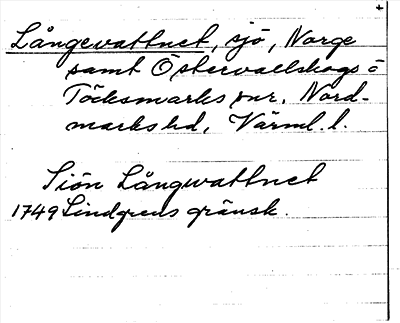 Långevattnet, sjö, Norge
samt Östervallskogs o
Töcksmarks snr, Nord-
marks hd, Värml. l.
Siön Långwattnet
1749 Lindgrens gränsk.